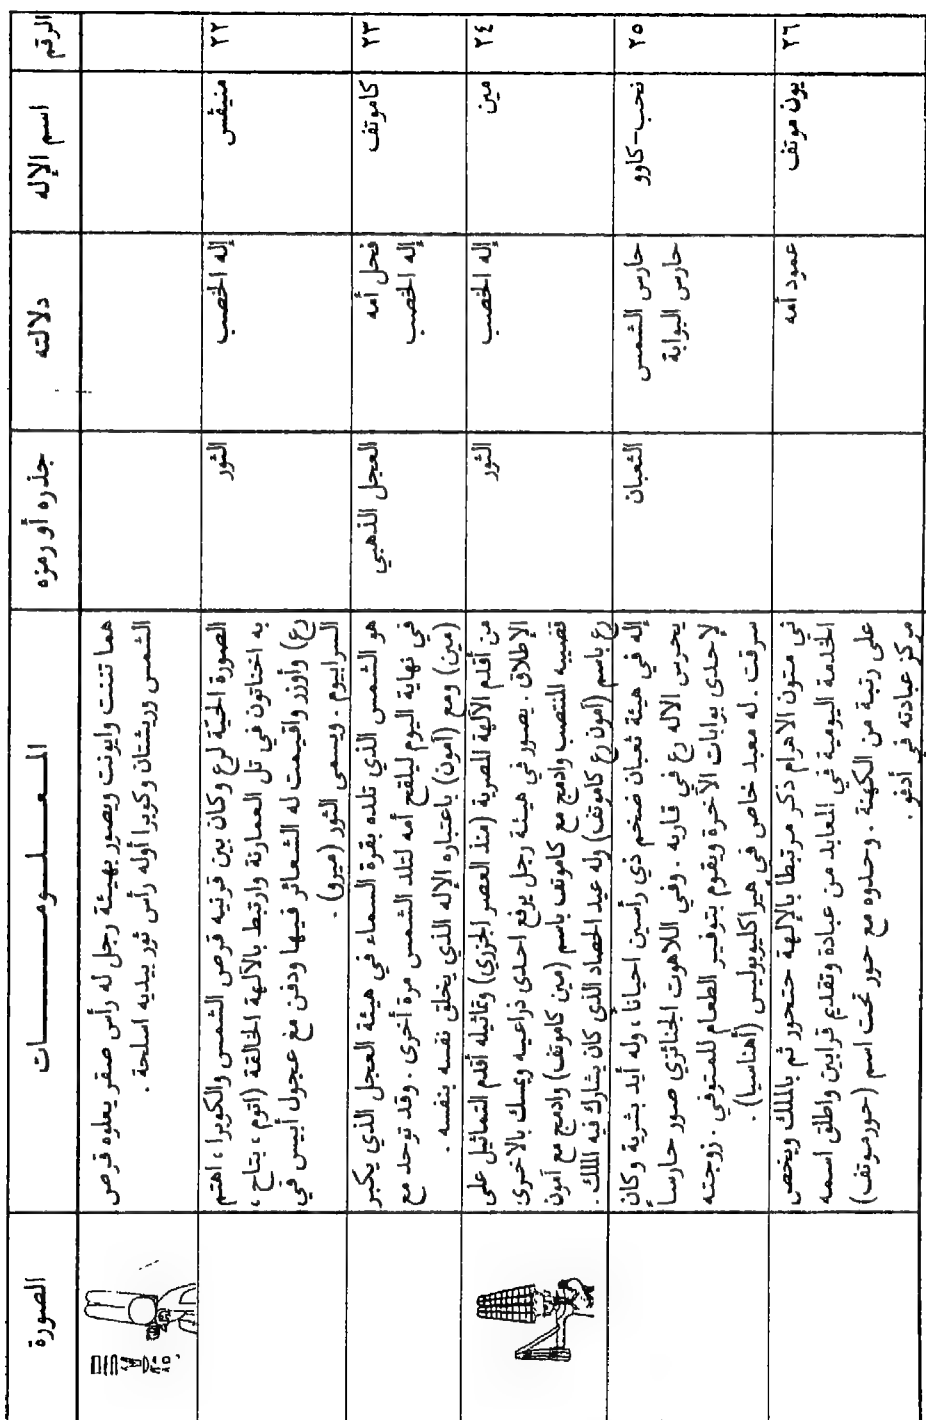 الرقم
اسم الإله
دلالته
جذره أو رمزه
المعلومات
الصورة
هما تننت وايونت ويصور بهيئة رجل له رأس صقر يعلوه قرص
الشمس وريشتان وكوبرا أوله رأس ثور بيديه اسلحة .
٢٢
منيفس
إله الخصب
الثور
الصورة الحية لرع وكان بين قرنيه قرص الشمس والكوبرا ، اهتم
به اخناتون في تل العمارنة وارتبط بالآلهة الخالقة (اتوم ، بتاح ،
رع) وأوزر واقيمت له الشعائر فيها ودفن مع عجول أبيس في
السرابيوم . ويسمى الثور (ميرو) .
٢٣
كاموتف
فحل أمه
إله الخصب
العجل الذهبي
هو الشمس الذي تلده بقرة السماء في هيئة العجل الذي يكبر
في نهاية اليوم ليلقح أمه لتلد الشمس مرة أخرى . وقد توحد مع
(مين) ومع (آمون) باعتباره الإله الذي يخلق نفسه بنفسه .
٢٤
مين
إله الخصب
الثور
من أقدم الآلهة المصرية (منذ العصر الجزري) وتماثيله أقدم التماثيل على
الإطلاق . يصور في هيئة رجل يرفع احدى ذراعيه ويمسك بالأخرى
قضيبه المنتصب وادمج مع كاموتف باسم (مين كاموتف) وادمج مع آمون
رع باسم (آمون رع كاموتف) وله عيد الحصاد الذي كان يشارك فيه الملك .
٢٥
نحب-كاوو
حارس الشمس
حارس البوابة
الثعبان
إله في هيئة ثعبان ضخم ذي رأسين احياناً ، وله أيد بشرية وكان
يحرس الاله رع في قاربه . وفي اللاهوت الجنائزي صور حارساً
لإحدى بوابات الآخرة ويقوم بتوفير الطعام للمتوفي . زوجته
سرقت . له معبد خاص في هيراكليوبوليس (أهناسيا) .
٢٦
يون موتف
عمود أمه
في متون الاهرام ذكر مرتبطاً بالإلهة حتحور ثم بالملك ويخص
الخدمة اليومية في المعابد من عبادة وتقديم قرابين واطلق اسمه
على رتبة من الكهنة . وحدوه مع حور تحت اسم (حورموتف)
مركز عبادته في أدفو .